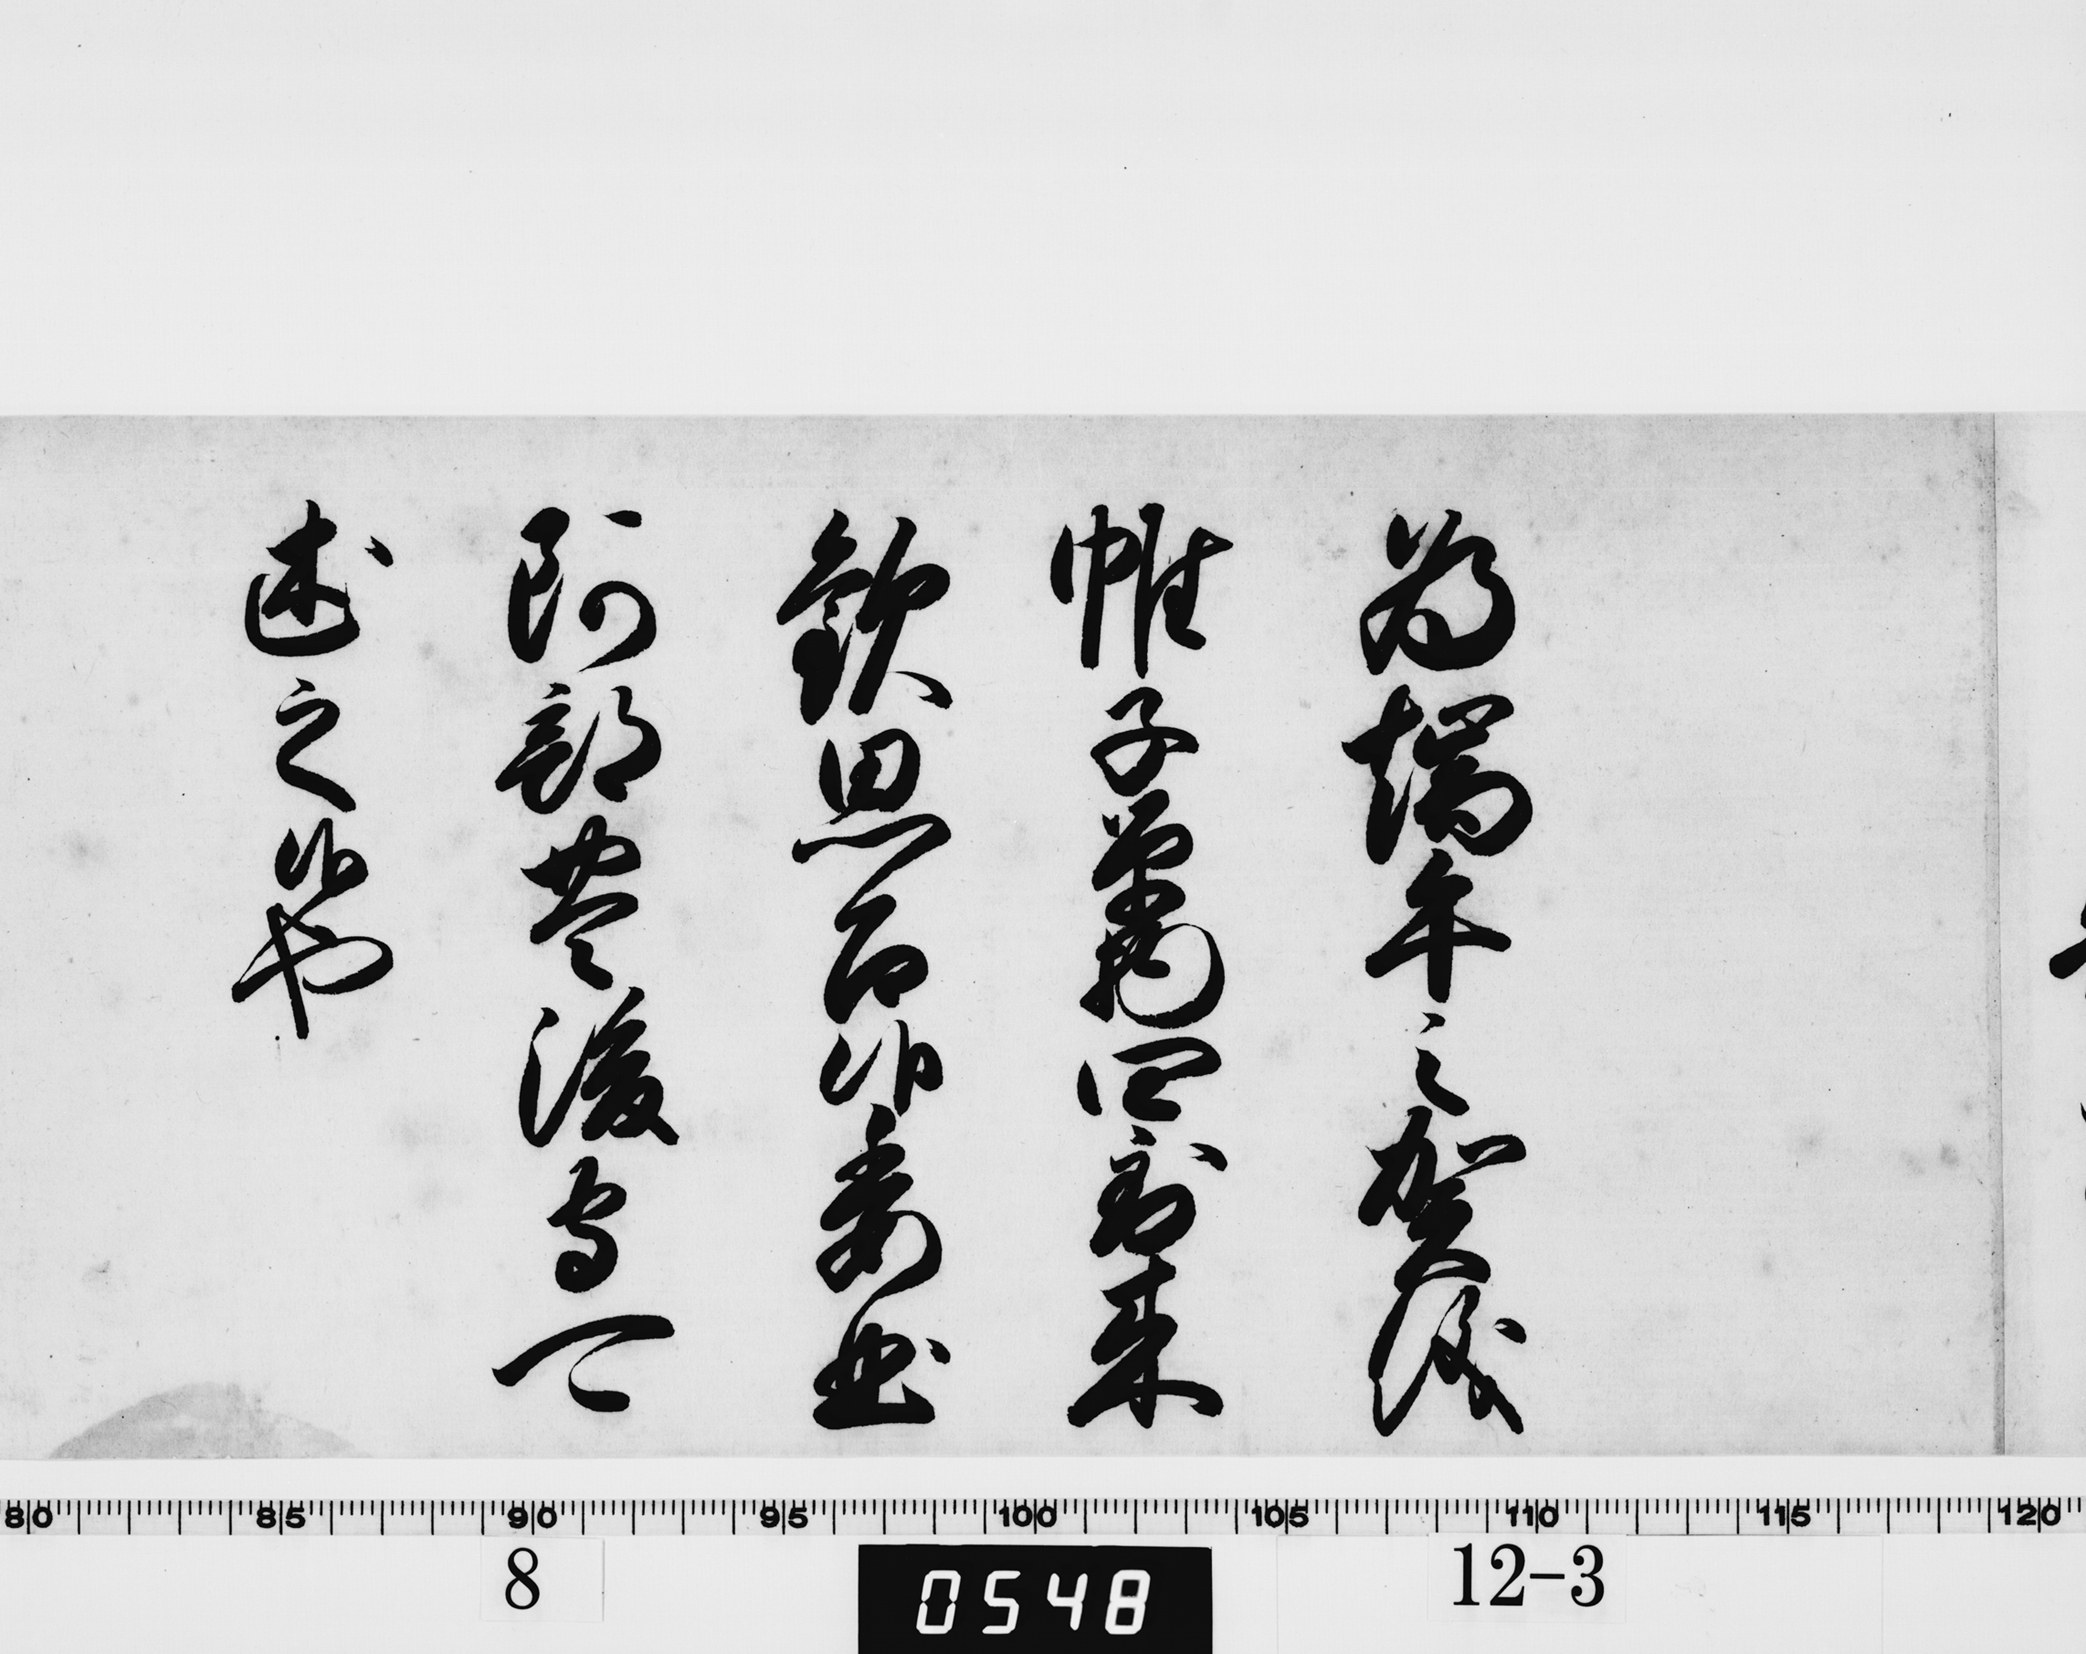 為端午之賀儀
帷子單物四到来
歓思召候委曲
阿部豊後守可
述之候也
80 85 90 95 100 105 110 115 120
8 0548 12-3